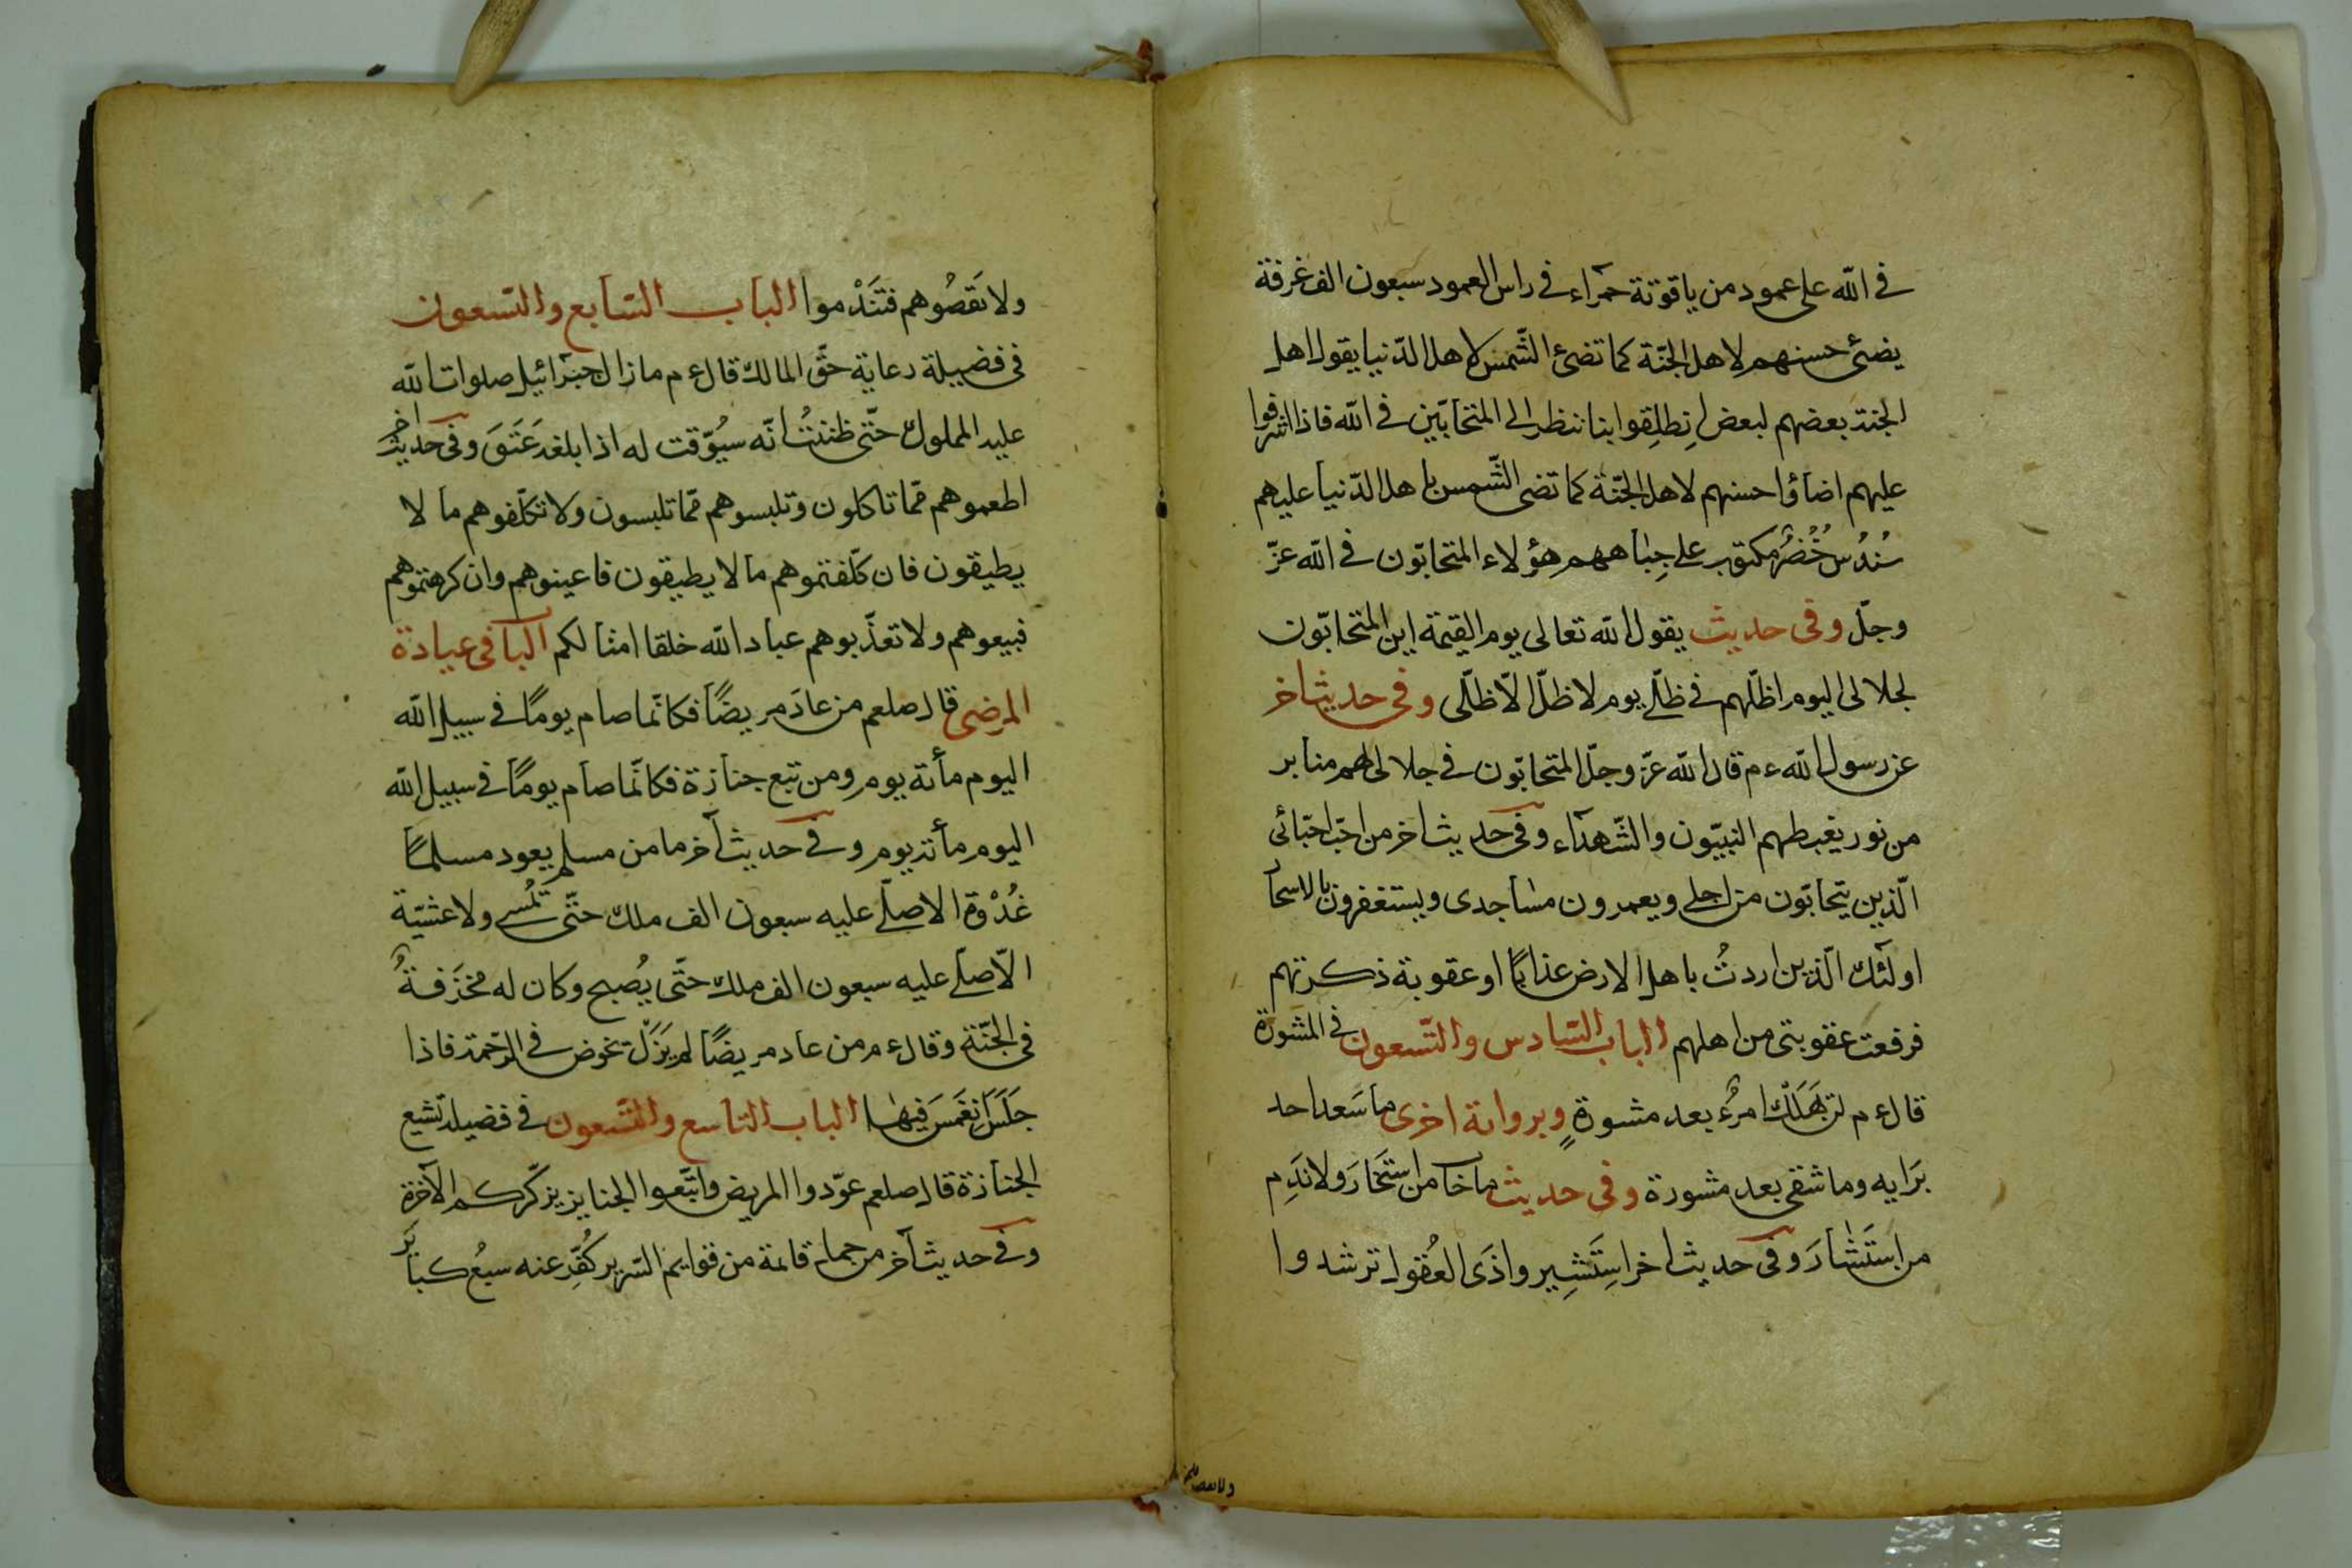 في الله على عمود من ياقوتة حمراء في راس العمود سبعون الف غرفة
يضئ حسنهم لاهل الجنّة كما تضئ الشّمس لاهل الدّنيا يقول اهل
الجنة بعضهم لبعض انطلِقوا بنا ننظر الى المتحابّين في الله فاذا اشرفوا
عليهم اضاؤا حسنهم لاهل الجنّة كما تضى الشّمس باهل الدّنيا عليهم
سُندُس خُضرٌ مكتوب على جِباههم هؤلاء المتحابّون في الله عزّ
وجلّ وفى حديث يقول الله تعالى يوم القيمة اين المتحابّون
لجلالى اليوم اظلّهم في ظلّي يوم لا ظلّ الّا ظلّى وفى حديث اخر
عن رسول الله ءم قال الله عزّ وجلّ المتحابّون في جلالى لهم منابر
من نور يغبطهم النبيّون والشّهدآء وفى حديث اخر من احبّ احبّائى
الّذين يتحابّون من اجلي ويعمرون مساجدى ويستغفرون بالاسحار
اولئك الّذين اردتُ باهل الارض عذابًا او عقوبة ذكرتهم
فرفعت عقوبتى من اهلهم الباب السّادس والتّسعون في المشورة
قال ءم لن يهَلك امرُء بعد مشورةٍ وبرواية اخرى ما سَعد احد
بَرايه وما شقى بعد مشورة وفى حديث ما خاب من استَخارَ ولا نَدِم
من استَشارَ وفى حديث اخر استَشِيروا ذَوى العُقول ترشدوا
ولا تعصوهم
ولا تعصُوهم فتَندْموا الباب السّابع والتّسعون
فى فضيلة رعاية حقّ المالك قال ءم ما زال جبَرائيل صلوات الله
عليه المملوك حتّى ظننتُ انّه سيُوّقت له اذا بلغه عَتَقَ وفى حديث آخر
اطعموهم ممّا تاكلون وتلبسوهم ممّا تلبسون ولا تكلّفوهم ما لا
يطيقون فان كلّفتموهم ما لا يطيقون فاعينوهم وان كرهتموهم
فبيعوهم ولا تعذّبوهم عباد الله خلقا امثالكم البا فى عيادة
المرضى قال صلعم من عادَ مريضًا فكانّما صام يومًا في سبيل الله
اليوم مأئة يوم ومن تبع جنازة فكانّما صام يومًا في سبيل الله
اليوم مأئة يوم وفى حديث آخر ما من مسلم يعود مسلمًا
غُدْوة الا صلّي عليه سبعون الف ملك حتّى تُمسي ولا عشيّة
الّا صلّي عليه سبعون الف ملك حتّى يُصبح وكان له مخزَفةٌ
فى الجنّة وقال ءم من عاد مريضًا لم يَزَلْ يخوض في الرّحمة فاذا
جَلَسَ انغَمَسَ فيها الباب التاسع والتّسعون فى فضيلة تشيع
الجنازة قال صلعم عوّدوا المريض واتّبعوا الجنايز يزكّركم الآخرة
وفى حديث آخر من حمل قائمة من قوايم السّرير كُفِّر عنه سبعُ كبائر